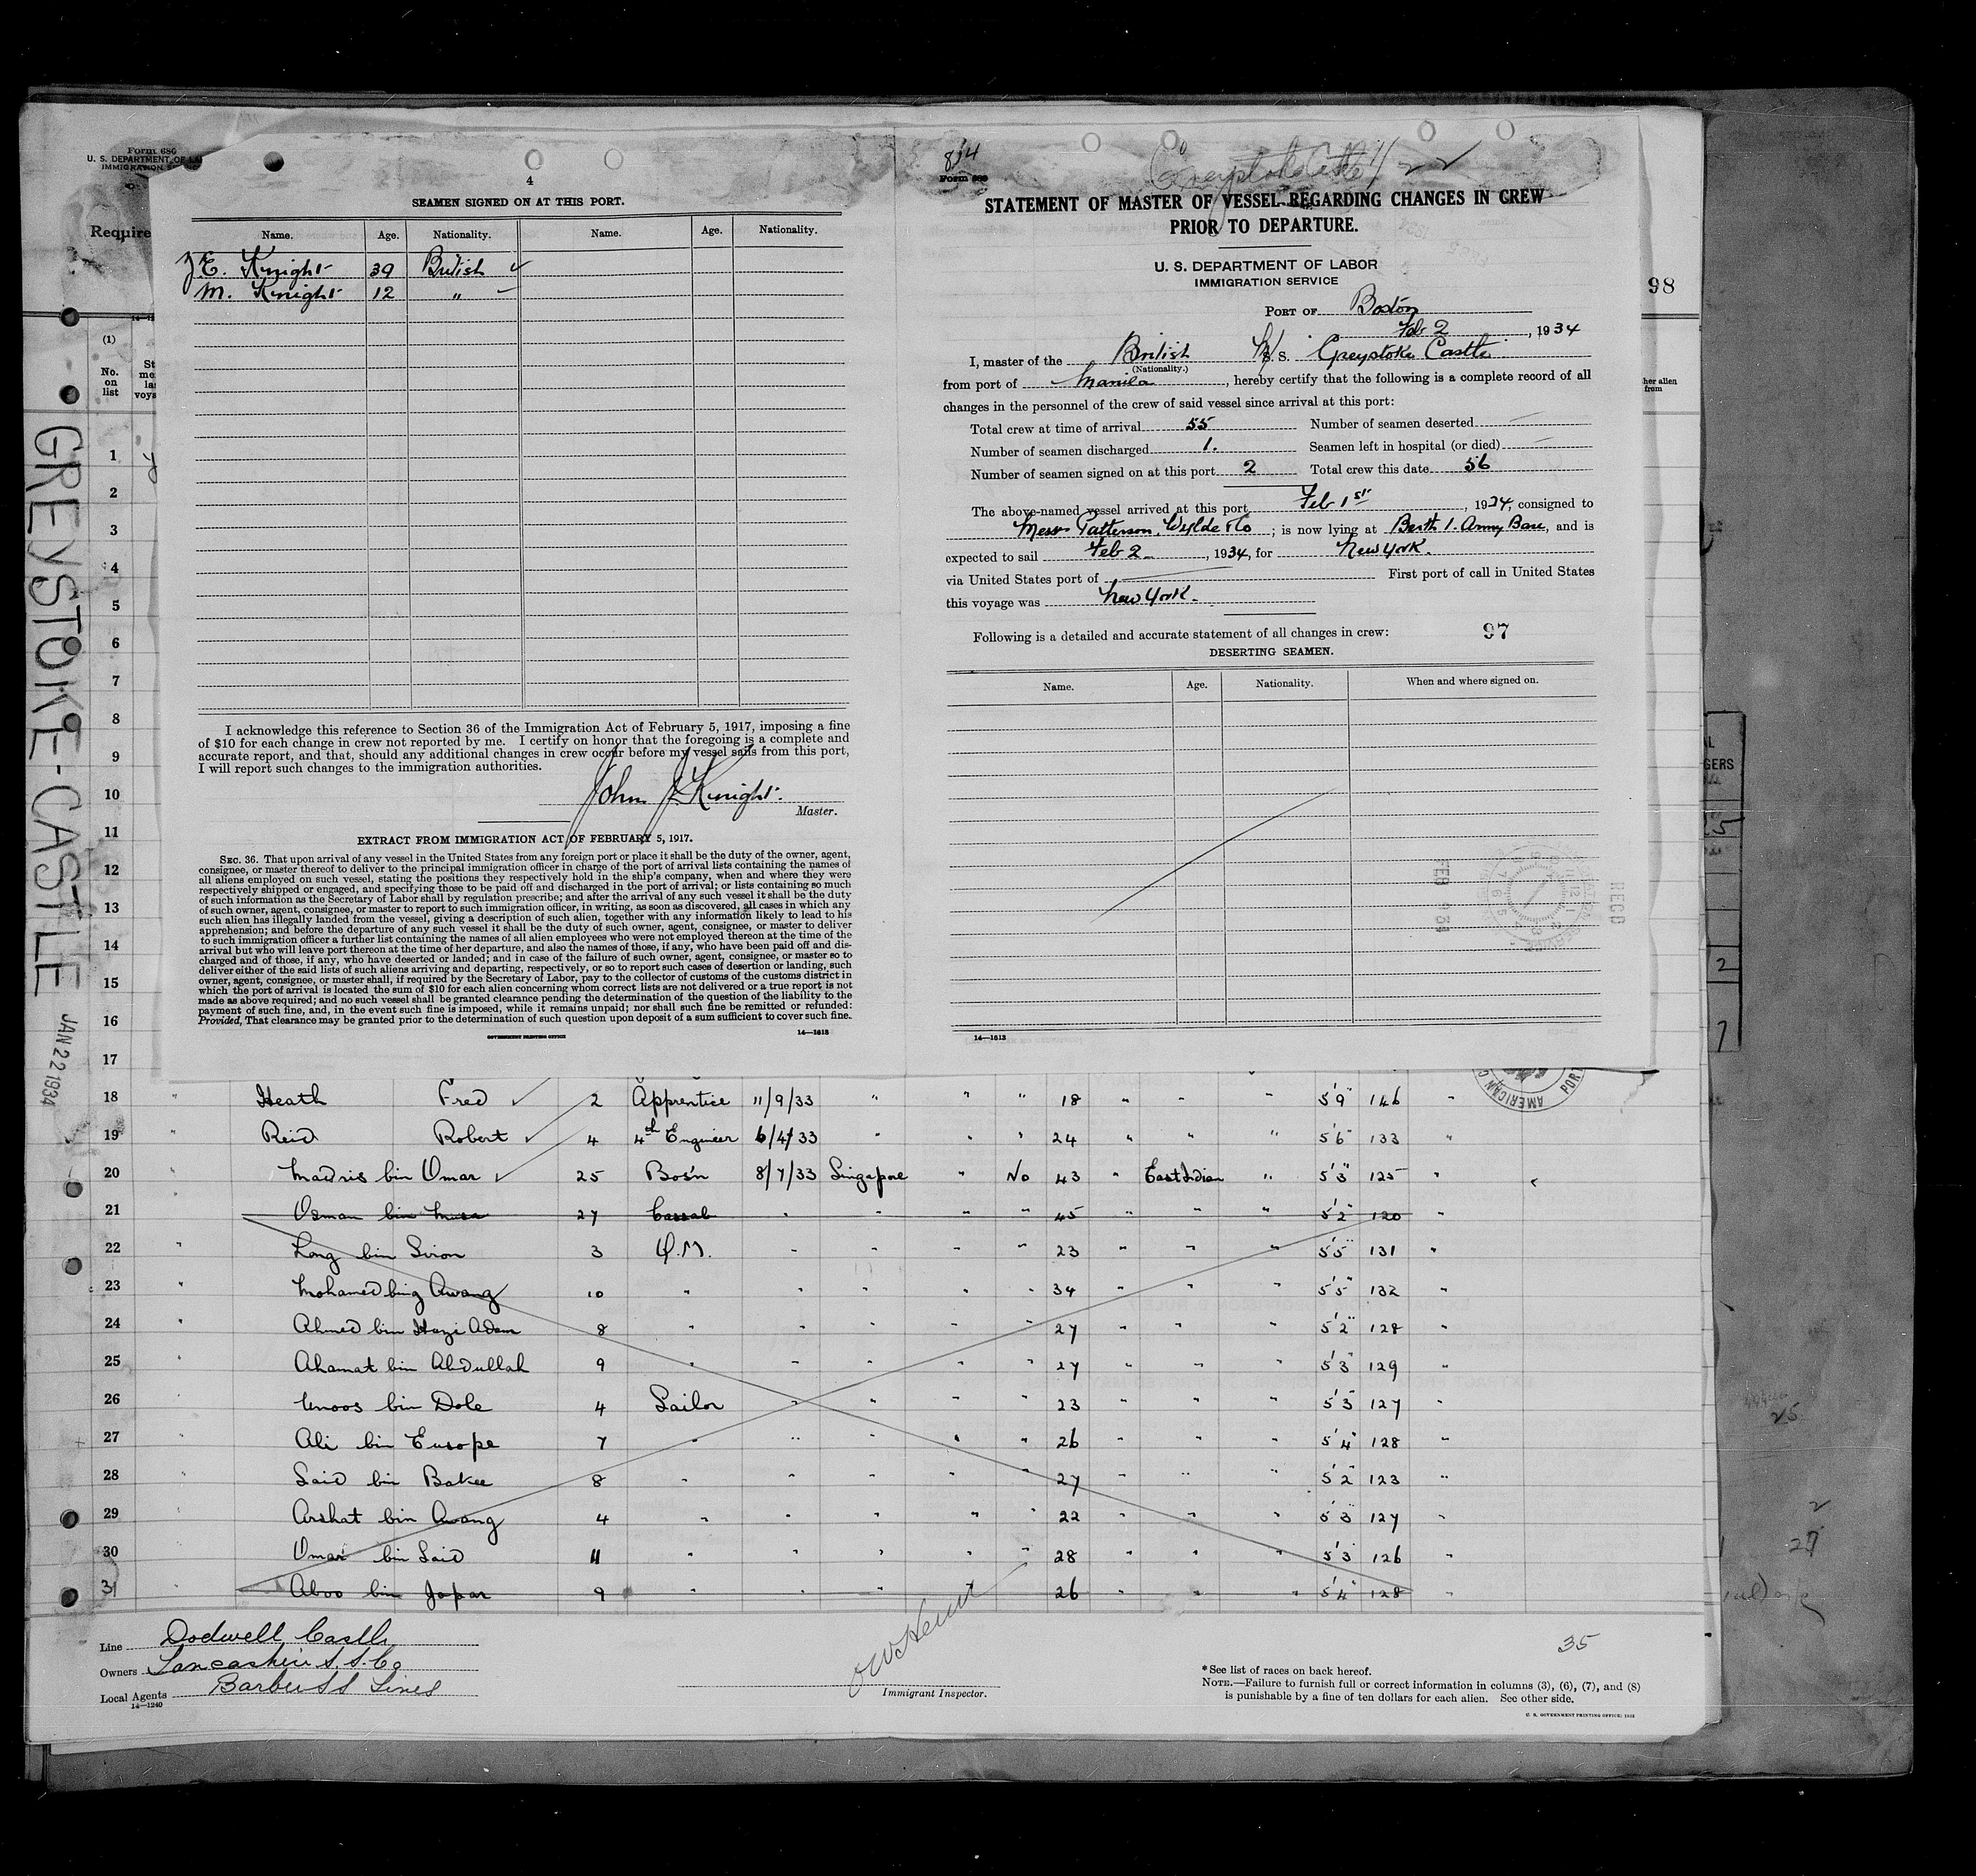 Form 680
U. S. DEPARTMENT OF LA
IMMIGRATION SE
Require
(1)
No.
on
list
GREYSTOKE-CASTLE
JAN 22 1934
4
SEAMEN SIGNED ON AT THIS PORT.
Name. Age. Nationality. Name. Age. Nationality.
E. Knight 39 British ✓
M. Knight 12 "
I acknowledge this reference to Section 36 of the Immigration Act of February 5, 1917, imposing a fine
of $10 for each change in crew not reported by me. I certify on honor that the foregoing is a complete and
accurate report, and that, should any additional changes in crew occur before my vessel sails from this port,
I will report such changes to the immigration authorities.
John J Knight.
Master.
EXTRACT FROM IMMIGRATION ACT OF FEBRUARY 5, 1917.
SEC. 36. That upon arrival of any vessel in the United States from any foreign port or place it shall be the duty of the owner, agent,
consignee, or master thereof to deliver to the principal immigration officer in charge of the port of arrival lists containing the names of
all aliens employed on such vessel, stating the positions they respectively hold in the ship's company, when and where they were
respectively shipped or engaged, and specifying those to be paid off and discharged in the port of arrival; or lists containing so much
of such information as the Secretary of Labor shall by regulation prescribe; and after the arrival of any such vessel it shall be the duty
of such owner, agent, consignee, or master to report to such immigration officer, in writing, as soon as discovered, all cases in which any
such alien has illegally landed from the vessel, giving a description of such alien, together with any information likely to lead to his
apprehension; and before the departure of any such vessel it shall be the duty of such owner, agent, consignee, or master to deliver
to such immigration officer a further list containing the names of all alien employees who were not employed thereon at the time of the
arrival but who will leave port thereon at the time of her departure, and also the names of those, if any, who have been paid off and dis-
charged and of those, if any, who have deserted or landed; and in case of the failure of such owner, agent, consignee, or master so to
deliver either of the said lists of such aliens arriving and departing, respectively, or so to report such cases of desertion or landing, such
owner, agent, consignee, or master shall, if required by the Secretary of Labor, pay to the collector of customs of the customs district in
which the port of arrival is located the sum of $10 for each alien concerning whom correct lists are not delivered or a true report is not
made as above required; and no such vessel shall be granted clearance pending the determination of the question of the liability to the
payment of such fine, and, in the event such fine is imposed, while it remains unpaid; nor shall such fine be remitted or refunded:
Provided, That clearance may be granted prior to the determination of such question upon deposit of a sum sufficient to cover such fine.
GOVERNMENT PRINTING OFFICE 14—1613
Greystoke Castle
STATEMENT OF MASTER OF VESSEL REGARDING CHANGES IN CREW
PRIOR TO DEPARTURE.
U. S. DEPARTMENT OF LABOR
IMMIGRATION SERVICE
PORT OF Boston
Feb 2, 1934
I, master of the British S. S. Greystoke Castle
(Nationality.)
from port of Manila, hereby certify that the following is a complete record of all
changes in the personnel of the crew of said vessel since arrival at this port:
Total crew at time of arrival 55 Number of seamen deserted
Number of seamen discharged 1. Seamen left in hospital (or died)
Number of seamen signed on at this port 2 Total crew this date 56
The above-named vessel arrived at this port Feb 1st, 1934, consigned to
Messrs Patterson, Wylde & Co; is now lying at Berth 1. Army Base, and is
expected to sail Feb 2, 1934, for New York.
via United States port of First port of call in United States
this voyage was New York.
Following is a detailed and accurate statement of all changes in crew: 97
DESERTING SEAMEN.
Name. Age. Nationality. When and where signed on.
REC'D
14—1613
98
1
2
3
4
5
6
7
8
9
10
11
12
13
14
15
16
17
18 " Heath Fred ✓ 2 Apprentice 11/9/33 " " " 18 " " " 5'9" 146 "
19 " Reid Robert ✓ 4 4th Engineer 6/4/33 " " " 24 " " " 5'6" 133 "
20 " Madris bin Omar ✓ 25 Bosn 8/7/33 Singapore " No 43 " East Indian " 5'3" 125 "
21 Osman bin Musa 27 Cassab " " " " 45 " " " 5'2" 120 "
22 " Long bin Siron 3 Q.M. " " " " 23 " " " 5'5" 131 "
23 " Mohamed bing Awang 10 " " " " " 34 " " " 5'5" 132 "
24 " Ahmed bin Hazi Adam 8 " " " " " 27 " " " 5'2" 128 "
25 " Ahamat bin Abdullah 9 " " " " " 27 " " " 5'3" 129 "
26 " Unoos bin Dole 4 Sailor " " " " 23 " " " 5'3" 127 "
27 " Ali bin Europe 7 " " " " " 26 " " " 5'4" 128 "
28 " Said bin Bakee 8 " " " " " 27 " " " 5'2" 123 "
29 " Arshat bin Awang 4 " " " " " 22 " " " 5'3" 127 "
30 " Omar bin Said 11 " " " " " 28 " " " 5'3" 126 "
31 " Aboo bin Japar 9 " " " " " 26 " " " 5'4" 128 "
Line Dodwell Castle
Owners Lancashire S. S. Co
Local Agents Barber SS Lines
14—1240
Immigrant Inspector.
35
*See list of races on back hereof.
NOTE.—Failure to furnish full or correct information in columns (3), (6), (7), and (8)
is punishable by a fine of ten dollars for each alien. See other side.